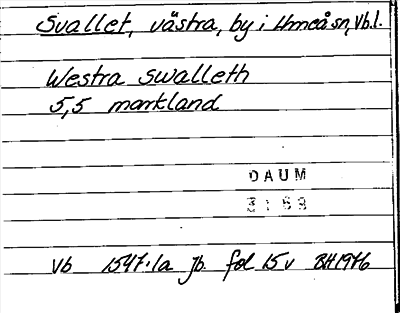 Svallet, västra, by i Umeå sn, Vb.l.
Westra swalleth
5,5 markland
DAUM
3159
Vb 1547:1a jb. fol 15v BH1976